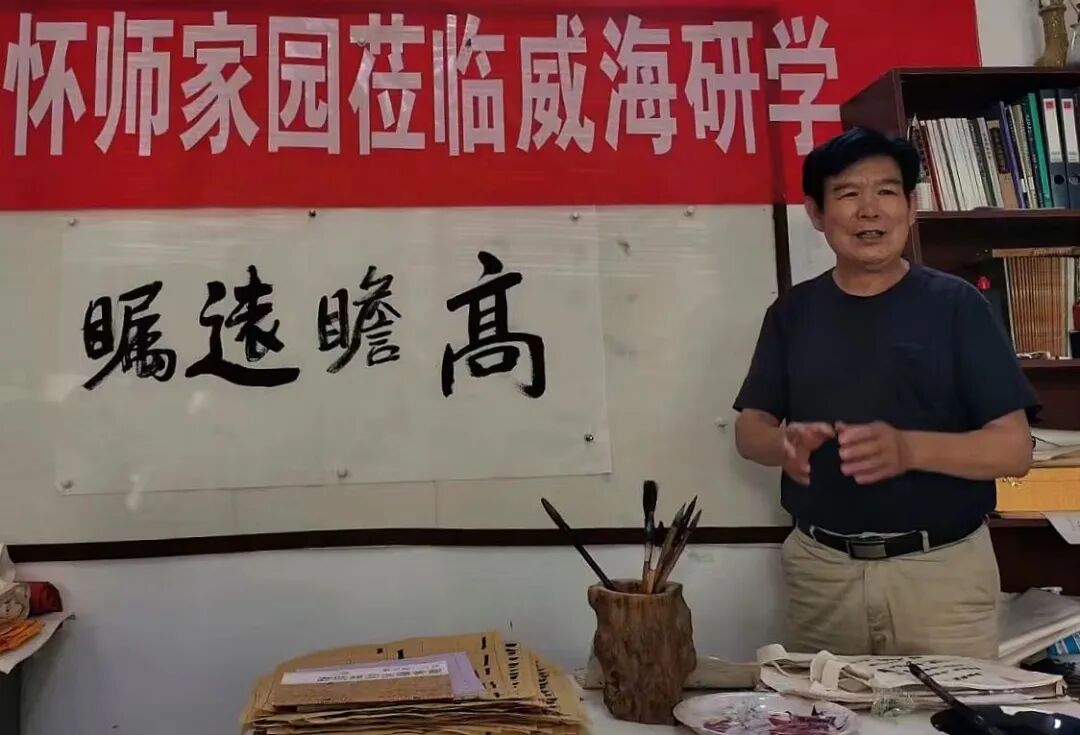 怀师家园莅临威海研学
高瞻遠瞩